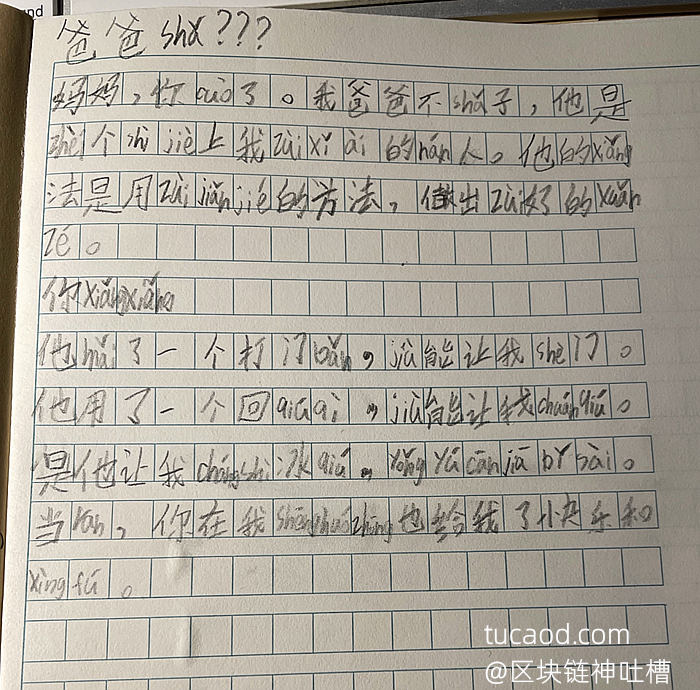 nd
爸爸shǎ???
妈妈,你cuò了。我爸爸不shǎ子,他是
zhè个shì jiè上我zùi xǐ ài的nán人。他的xiǎng
法是用zùi jiǎn jié的方法,做出zùi好的xuǎn
zé。
你xiǎngxiǎng
他mǎi了一个打门bǎn,jiù能让我shè门。
他用了一个回qiú qì,jiù能让我chuán qiú。
是他让我cháng shì冰qiú,yǒng yú cān jiā bǐ sài。
当rán,你在我shēng huó zhōng也给我了快乐和
xìng fú。
tucaod.com
@区块链神吐槽